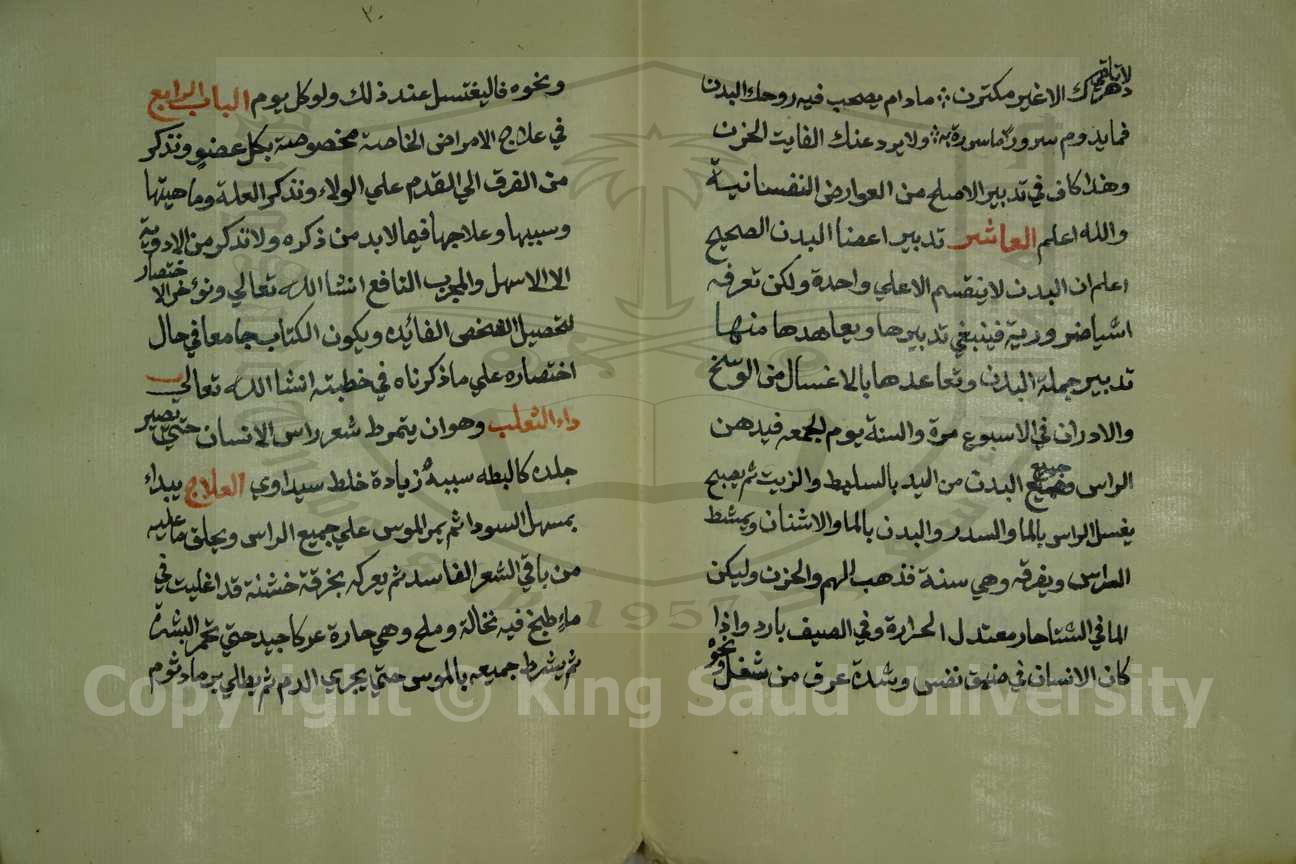 لا تلقي دهرك الا غير مكترث ∴ ما دام يصحب فيه روحك البدن
فما يدوم سرور ما سررت به ∴ ولا يرد عنك الفايت الحزن
وهذا كاف في تدبير الاصلح من العوارض النفسانية
والله اعلم العاشر تدبير اعضا البدن الصحيح
اعلم ان البدن لا ينقسم الا علي واحدة ولكن تعرفه
اشيا ضرورية فينبغي تدبيرها ويعاهدها منها
تدبير جملة البدن وتعاهدها بالاغسال من الوسخ
والادران في الاسبوع مرة والسنة يوم الجمعه فيدهن
الراس وجميع البدن من اليد بالسليط والزيت ثم يصبح
يغسل الراس بالما والسدر والبدن بالما والاشنان ويمشط
الراس ويفرقه وهي سنة تذهب الهم والحزن وليكن
الما في الشتا حار معتدل الحرارة وفي الصيف بارد واذا
كان الانسان في ضيق نفس وشدة عرق من شغل ونحوه
ونحوه فاليغتسل عند ذلك ولو كل يوم الباب الرابع
في علاج الامراض الخاصة مخصوصة بكل عضو ونذكر
من الفرق الي القدم علي الولاء ونذكر العلة وماهيتها
وسببها وعلاجها فيما لابد من ذكره ولا نذكر من الادوية
الا الاسهل والمجرب النافع انشا الله تعالي ونؤخر الاختصار
لتحصيل الفائده ويكون الكتاب جامعا في حال
اختصاره علي ما ذكرناه في خطبته انشا الله تعالي
داء الثعلب وهو ان يتمرط شعر راس الانسان حتي يصير
جلده كالبطه سببه زيادة خلط سوداوي العلاج يبداء
بمسهل السودا ثم يمر الموس علي جميع الراس ويحلق ما عليه
من باقي الشعر الفاسد ثم يعركه بخرقة خشنة قد اغليت في
ماء طبخ فيه نخالة وملح وهي حارة عركا جيد حتي تحمر البشرة
ثم يشرط جميعه بالموس حتي يجري الدم ثم يطلي برماد ثوم
Copyright © King Saud University
1957